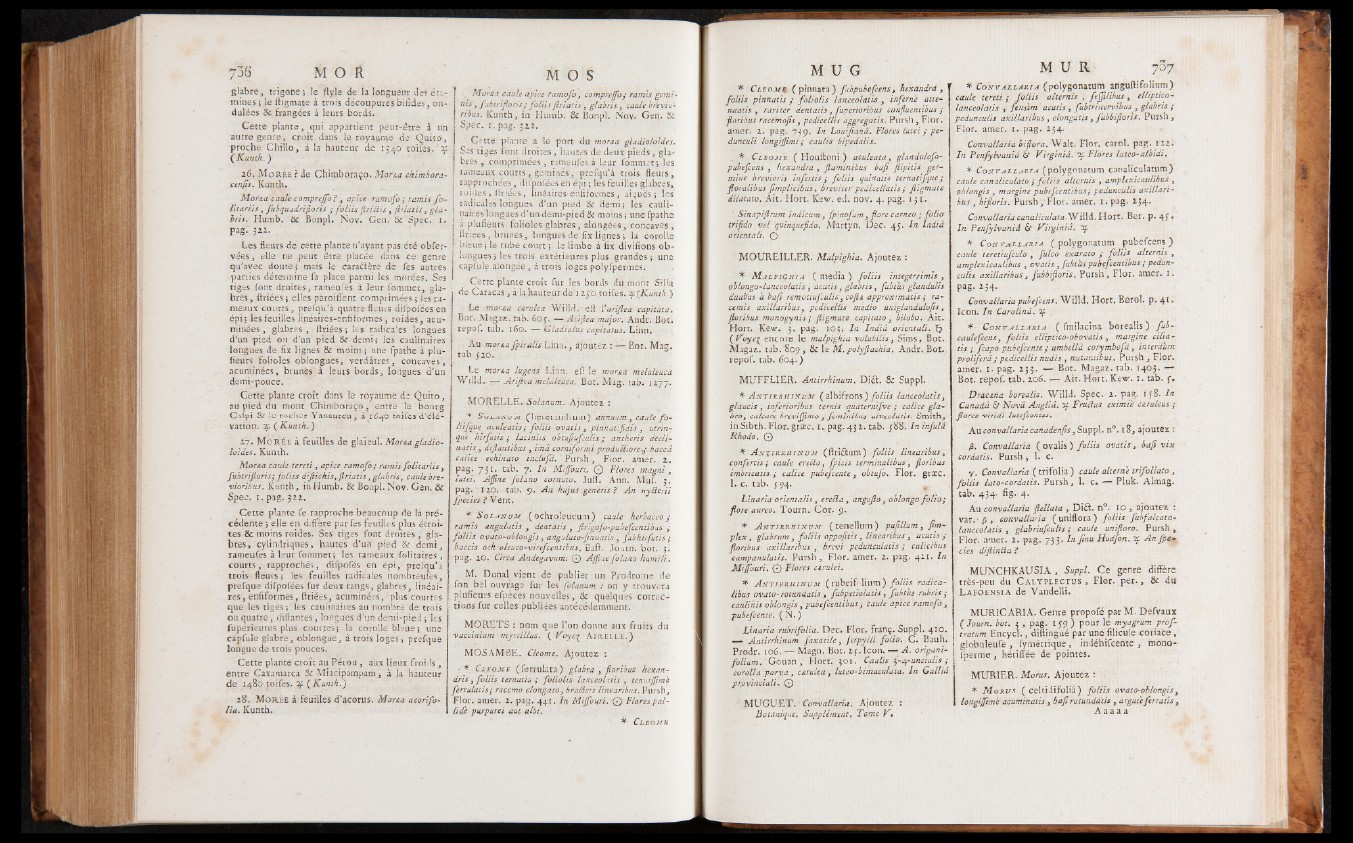 736 M O R
glabre, trigone; le ſtyle de la longueur des éta-
mines; le ſtigmate à trois découpures bifides, on-
dulées & frangées à leurs bords.
Cette plante, qui appartient peut-être à un
autre genre, croît dans le royaume de Quito,
proche Chillo, à la hauteur de 1340 toiſes. ♃
(Kunth.)
26. MORÉE? de Chimboraço. Moraea chimbora-
cenſis. Kunth.
Moraea caule compreſſo?, apice ramoſo; ramis ſo-
litariis, ſubquadrifloris; foliis ſtrictis, ſtriatis, gla-
bris. Humb. & Bonpl. Nov. Gen. & Spec. 1.
pag. 322.
Les fleurs de cette plante n'ayant pas été obſer-
vées, elle ne peut être placée dans ce genre
qu'avec doute; mais le caractère de ſes autres
parties détermine ſa place parmi les morées. Ses
tiges ſont droites, rameuſes à leur ſommet, gla-
bres, ſtriées; elles paroiſſent comprimées; les ra-
meaux courts, preſqu'à quatre fleurs diſpoſées en
épi; les feuilles linéaires-enſiformes, roides, acu-
minées, glabres, ſtriées; les radicales longues
d'un pied ou d'un pied & demi; les caulinaires
longues de ſix lignes & moins; une ſpathe à plu-
ſieurs folioles oblongues, verdâtres, concaves,
acuminées, brunes à leurs bords, longues d'un
demi-pouce.
Cette plante croît dans le royaume de Quito,
au pied du mont Chimboraço, entre le bourg
Calpi & le rocher Yanaurcu, à 1640 toiſes d'élé-
vation. ♃ (Kunth.)
27. MORÉE à feuilles de glaïeul. Moraea gladio-
loides. Kunth.
Moraea caule tereti, apice ramoſo; ramis ſolitariis,
ſubtrifloris; foliis diſtichis, ſtriatis, glabris, caule bre-
vioribus. Kunth, in Humb. & Bonpl. Nov. Gen. &
Spec. 1. pag. 322.
Cette plante ſe rapproche beaucoup de la pré-
cédente; elle en diffère par ſes feuilles plus étroi-
tes & moins roides. Ses tiges ſont droites, gla-
bres, cylindriques, hautes d'un pied & demi,
rameuſes à leur ſommet; les rameaux ſolitaires,
courts, rapprochés, diſpoſés en épi, preſqu'à
trois fleurs; les feuilles radicales nombreuſes,
preſque diſpoſées ſur deux rangs, glabres, linéai-
res, enſiformes, ſtriées, acuminées, plus courtes
que les tiges; les caulinaires au nombre de trois
ou quatre, diſtantes, longues d'un demi-pied; les
ſupérieures plus courtes; la corolle bleue; une
capſule glabre, oblongue, à trois loges, preſque
longue de trois pouces.
Cette plante croît au Pérou, aux lieux froids,
entre Caxamarca & Micuipampam, à la hauteur
de 1480 toiſes. ♃ (Kunth.)
28. MORÉE à feuilles d'acorus. Moraea acorifo-
lia. Kunth.
M O S
Moraea caule apice ramoſo, compreſſo; ramis gemi-
nis, ſubtrifloris; foliis ſtriatis, glabris, caule brevio-
ribus. Kunth, in Humb. & Bonpl. Nov. Gen. &
Spec. 1. pag. 322.
Cette plante a le port du moraea gladioloides.
Ses tiges ſont droites, hautes de deux pieds, gla-
bres, comprimées, rameuſes à leur ſommet; les
rameaux courts, geminés, preſqu'à trois fleurs,
rapprochées, diſpoſées en épi; les feuilles glabres,
roides, ſtriées, linéaires-enſiformes, aiguës; les
radicales longues d'un pied & demi; les cauli-
naires longues d'un demi-pied & moins; une ſpathe
à pluſieurs folioles glabres, alongées, concaves,
ſtriées, brunes, longues de ſix lignes; la corolle
bleue; le tube court; le limbe à ſix diviſions ob-
longues; les trois extérieures plus grandes; une
capſule alongée, à trois loges polyſpermes.
Cette plante croît ſur les bords du mont Silla
de Caracas, à la hauteur de 1250 toiſes. ♃ (Kunth.)
Le moraea caerulea Willd. eſt l'ariſtea capitata.
Bot. Magaz. tab. 605. — Ariſtea major. Andr. Bot.
repoſ. tab. 160. — Gladiolus capitatus. Linn.
Au moraea ſpiralis Linn., ajoutez : — Bot. Mag.
tab. 520.
Le moraea lugens Linn. eſt le moraea melaleuca
Willd. — Ariſtea melaleuca. Bot. Mag. tab. 1277.
MORELLE. Solanum. Ajoutez :
* SOLANUM (heterandrum) annuum, caule fo-
liiſque aculeatis; foliis ovatis, pinnatifidis, utrin-
què hirſutis; laciniis obtuſiuſculis; antheris decli-
natis, diſtantibus, imâ corniformi productiore; baccâ
calice echinato incluſâ. Purſh, Flor. amer. 2.
pag. 731. tab. 7. In Miſſouri. ☉ Flores magni,
lutei. Affine ſolano cornuto. Juſſ. Ann. Muſ. 3.
pag. 120. tab. 9. An hujus generis? An nycterii
ſpecies? Vent.
* SOLANUM (ochroleucum) caule herbaceo;
ramis angulatis, dentatis, ſtrigoſo-pubeſcentibus;
foliis ovato-oblongis, angulato-ſinuatis, ſubhirſutis;
baccis ochroleuco-vireſcentibus. Baſt. Journ. bot. 3.
pag. 20. Circa Andegavum. ☉ Affine ſolano humili.
M. Dunal vient de publier un Prodrome de
ſon bel ouvrage ſur les ſolanum : on y trouvera
pluſieurs eſpèces nouvelles, & quelques correc-
tions ſur celles publiées antécédemment.
MORETS : nom que l'on donne aux fruits du
vaccinium myrtillus. (Voyez AIRELLE.)
MOSAMBÉ. Cleome. Ajoutez :
* CLEOME (ſerrulata) glabra, floribus hexan-
dris, foliis ternatis; foliolis lanceolatis, tenuiſſimè
ſerrulatis; racemo elongato, bracteis linearibus. Purſh,
Flor. amer. 2. pag. 441. In Miſſouri. ☉ Flores pal-
lidè purpurei aut albi.
* CLEOME
M U G
* CLEOME (pinnata) ſubpubeſcens, hexandra,
foliis pinnatis; foliolis lanceolatis, infernè atte-
nuatis, rariter dentatis, ſuperioribus confluentibus;
floribus racemoſis, pedicellis aggregatis. Purſh, Flor.
amer. 2. pag. 739. In Louiſianâ. Flores lutei; pe-
dunculi longiſſimi; caulis bipedalis.
* CLEOME (Houſtoni) aculeata, glanduloſo-
pubeſcens, hexandra, ſtaminibus baſi ſtipitis ger-
mine brevioris inſertis; foliis quinatis ternatiſque;
floralibus ſimplicibus, breviter pedicellatis; ſtigmate
dilatato. Ait. Hort. Kew. ed. nov. 4. pag. 131.
Sinapiſtrum indicum, ſpinoſum, flore carneo; folio
trifido vel quinquefido. Martyn. Dec. 45. In Indiâ
orientali. ☉
MOUREILLER. Malpighia. Ajoutez :
* MALPIGHIA (media) foliis integerrimis,
oblongo-lanceolatis, acutis, glabris, ſubtùs glandulis
duabus à baſi remotiuſculis, coſtâ approximatis; ra-
cemis axillaribus, pedicellis medio uniglanduloſis,
floribus monogynis; ſtigmate capitato, bilobo. Ait.
Hort. Kew. 3. pag. 103. In Indiâ orientali. ♄
(Voyez encore le malpighia volubilis, Sims, Bot.
Magaz. tab. 809, & le M. polyſtachia. Andr. Bot.
repoſ. tab. 604.)
MUFFLIER. Antirrhinum. Dict. & Suppl.
* ANTIRRHINUM (albifrons) foliis lanceolatis,
glaucis, inferioribus ternis quaternifve; calice gla-
bro, calcare breviſſimo, ſeminibus alveolatis. Smith,
in Sibth. Flor. græc. 1. pag. 432. tab. 588. In inſulâ
Rhodo. ☉
* ANTIRRHINUM (ſtrictum) foliis linearibus,
confertis; caule erecto, ſpicis terminalibus, floribus
imbricatis; calice pubeſcente, obtuſo. Flor. græc.
l. c. tab. 594.
Linaria orientalis, erecta, anguſto, oblongo folio;
flore aureo. Tourn. Cor. 9.
* ANTIRRHINUM (tenellum) puſillum, ſim-
plex, glabrum, foliis oppoſitis, linearibus, acutis;
floribus axillaribus, brevi pedunculatis; calicibus
campanulatis. Purſh, Flor. amer. 2. pag. 421. In
Miſſouri. ☉ Flores caerulei.
* ANTIRRHINUM (rubrifolium) foliis radica-
libus ovato-rotundatis, ſubpetiolatis, ſubtùs rubris;
caulinis oblongis, pubeſcentibus; caule apice ramoſo,
pubeſcente. (N.)
Linaria rubrifolia. Dec. Flor. franç. Suppl. 410.
— Antirrhinum ſaxatile, ſerpylli folio. C. Bauh.
Prodr. 106. — Magn. Bot. 25. Icon. — A. origani-
folium. Gouan, Hort. 301. Caulis 3-4-uncialis;
corolla parva, caerulea, luteo-bimaculata. In Galliâ
provinciali. ☉
MUGUET. Convallaria. Ajoutez :
Botanique. Supplément. Tome V.
M U R 737
* CONVALLARIA (polygonatum anguſtifolium)
caule tereti; foliis alternis, ſeſſilibus, elliptico-
lanceolatis, ſenſim acutis, ſubtrinervibus, glabris;
pedunculis axillaribus, elongatis, ſubbifloris. Purſh,
Flor. amer. 1. pag. 234.
Convallaria biflora. Walt. Flor. carol. pag. 122.
In Penſylvaniâ & Virginiâ. ♃ Flores luteo-albidi.
* CONVALLARIA (polygonatum canaliculatum)
caule canaliculato; foliis alternis, amplexicaulibus,
oblongis, margine pubeſcentibus; pedunculis axillari-
bus, bifloris. Purſh, Flor. amer. 1. pag. 234.
Convallaria canaliculata. Willd. Hort. Ber. p. 45.
In Penſylvaniâ & Virginiâ. ♃
* CONVALLARIA (polygonatum pubeſcens)
caule teretiuſculo, ſulco exarato; foliis alternis,
amplexicaulibus, ovatis, ſubtùs pubeſcentibus; pedun-
culis axillaribus, ſubbifloris. Purſh, Flor. amer. 1.
pag. 234.
Convallaria pubeſcens. Willd. Hort. Berol. p. 41.
Icon. In Carolinâ. ♃
* CONVALLARIA (ſmilacina borealis) ſub-
cauleſcens, foliis elliptico-obovatis, margine cilia-
tis; ſcapo pubeſcente; umbellâ corymboſâ, interdùm
proliferâ; pedicellis nudis, nutantibus. Purſh, Flor.
amer. 1. pag. 233. — Bot. Magaz. tab. 1403. —
Bot. repoſ. tab. 206. — Ait. Hort. Kew. 1. tab. 5.
Dracaena borealis. Willd. Spec. 2. pag. 158. In
Canadâ & Novâ Angliâ. ♃ Fructus eximiè caeruleus;
flores viridi luteſcentes.
Au convallaria canadenſis, Suppl. n°. 18, ajoutez :
β. Convallaria (ovalis) foliis ovatis, baſi vix
cordatis. Purſh, l. c.
γ. Convallaria (trifolia) caule alternè trifoliato,
foliis lato-cordatis. Purſh, l. c. — Pluk. Almag.
tab. 434. fig. 4.
Au convallaria ſtellata, Dict. n°. 10, ajoutez :
var. β, convallaria (uniflora) foliis ſubfalcato-
lanceolatis, glabriuſculis; caule unifloro. Purſh,
Flor. amer. 2. pag. 733. In ſinu Hudſon. ♃ An ſpe-
cies diſtincta?
MUNCHKAUSIA, Suppl. Ce genre diffère
très-peu du CALYPLECTUS, Flor. per., & du
LAFOENSIA de Vandelli.
MURICARIA. Genre propoſé par M. Deſvaux
(Journ. bot. 3, pag. 159) pour le myagrum proſ-
tratum Encycl., diſtingué par une ſilicule coriace,
globuleuſe, ſymétrique, indéhiſcente, mono-
ſperme, hériſſée de pointes.
MURIER. Morus. Ajoutez :
* MORUS (celtidifolia) foliis ovato-oblongis,
longiſſimè acuminatis, baſi rotundatis, argutè ſerratis,
A a a a a